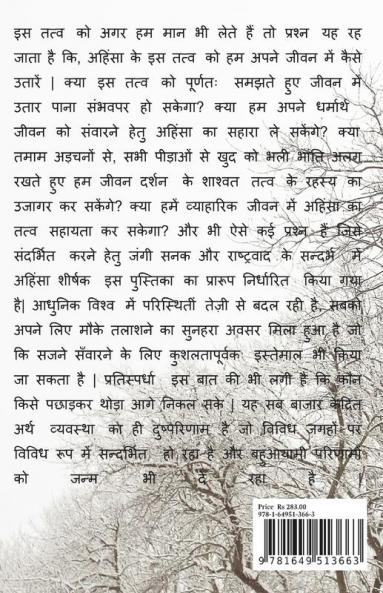 इस तत्व को अगर हम मान भी लेते हैं तो प्रश्न यह रह
जाता है कि, अहिंसा के इस तत्व को हम अपने जीवन में कैसे
उतारें | क्या इस तत्व को पूर्णतः समझते हुए जीवन में
उतार पाना संभवपर हो सकेगा? क्या हम अपने धर्मार्थ
जीवन को संवारने हेतु अहिंसा का सहारा ले सकेंगे? क्या
तमाम अड़चनों से, सभी पीड़ाओं से खुद को भली भाँति अलग
रखते हुए हम जीवन दर्शन के शाश्वत तत्व के रहस्य का
उजागर कर सकेंगे? क्या हमें व्याहारिक जीवन में अहिंसा का
तत्व सहायता कर सकेगा? और भी ऐसे कई प्रश्न हैं जिसे
संदर्भित करने हेतु जंगी सनक और राष्ट्रवाद के सन्दर्भ में
अहिंसा शीर्षक इस पुस्तिका का प्रारूप निर्धारित किया गया
है| आधुनिक विश्व में परिस्थितीं तेज़ी से बदल रही है, सबको
अपने लिए मौके तलाशने का सुनहरा अवसर मिला हुआ है जो
कि सजने सँवारने के लिए कुशलतापूर्वक इस्तेमाल भी किया
जा सकता है | प्रतिस्पर्धा इस बात की भी लगी हैं कि कौन
किसे पछाड़कर थोड़ा आगे निकल सके | यह सब बाजार केंद्रित
अर्थ व्यवस्था को ही दुष्परिणाम है जो विविध जगहों पर
विविध रूप में सन्दर्भित हो रहा है और बहुआयामी परिणामों
को जन्म भी दे रहा है |
Price Rs 283.00
978-1-64951-366-3
9 781649 513663